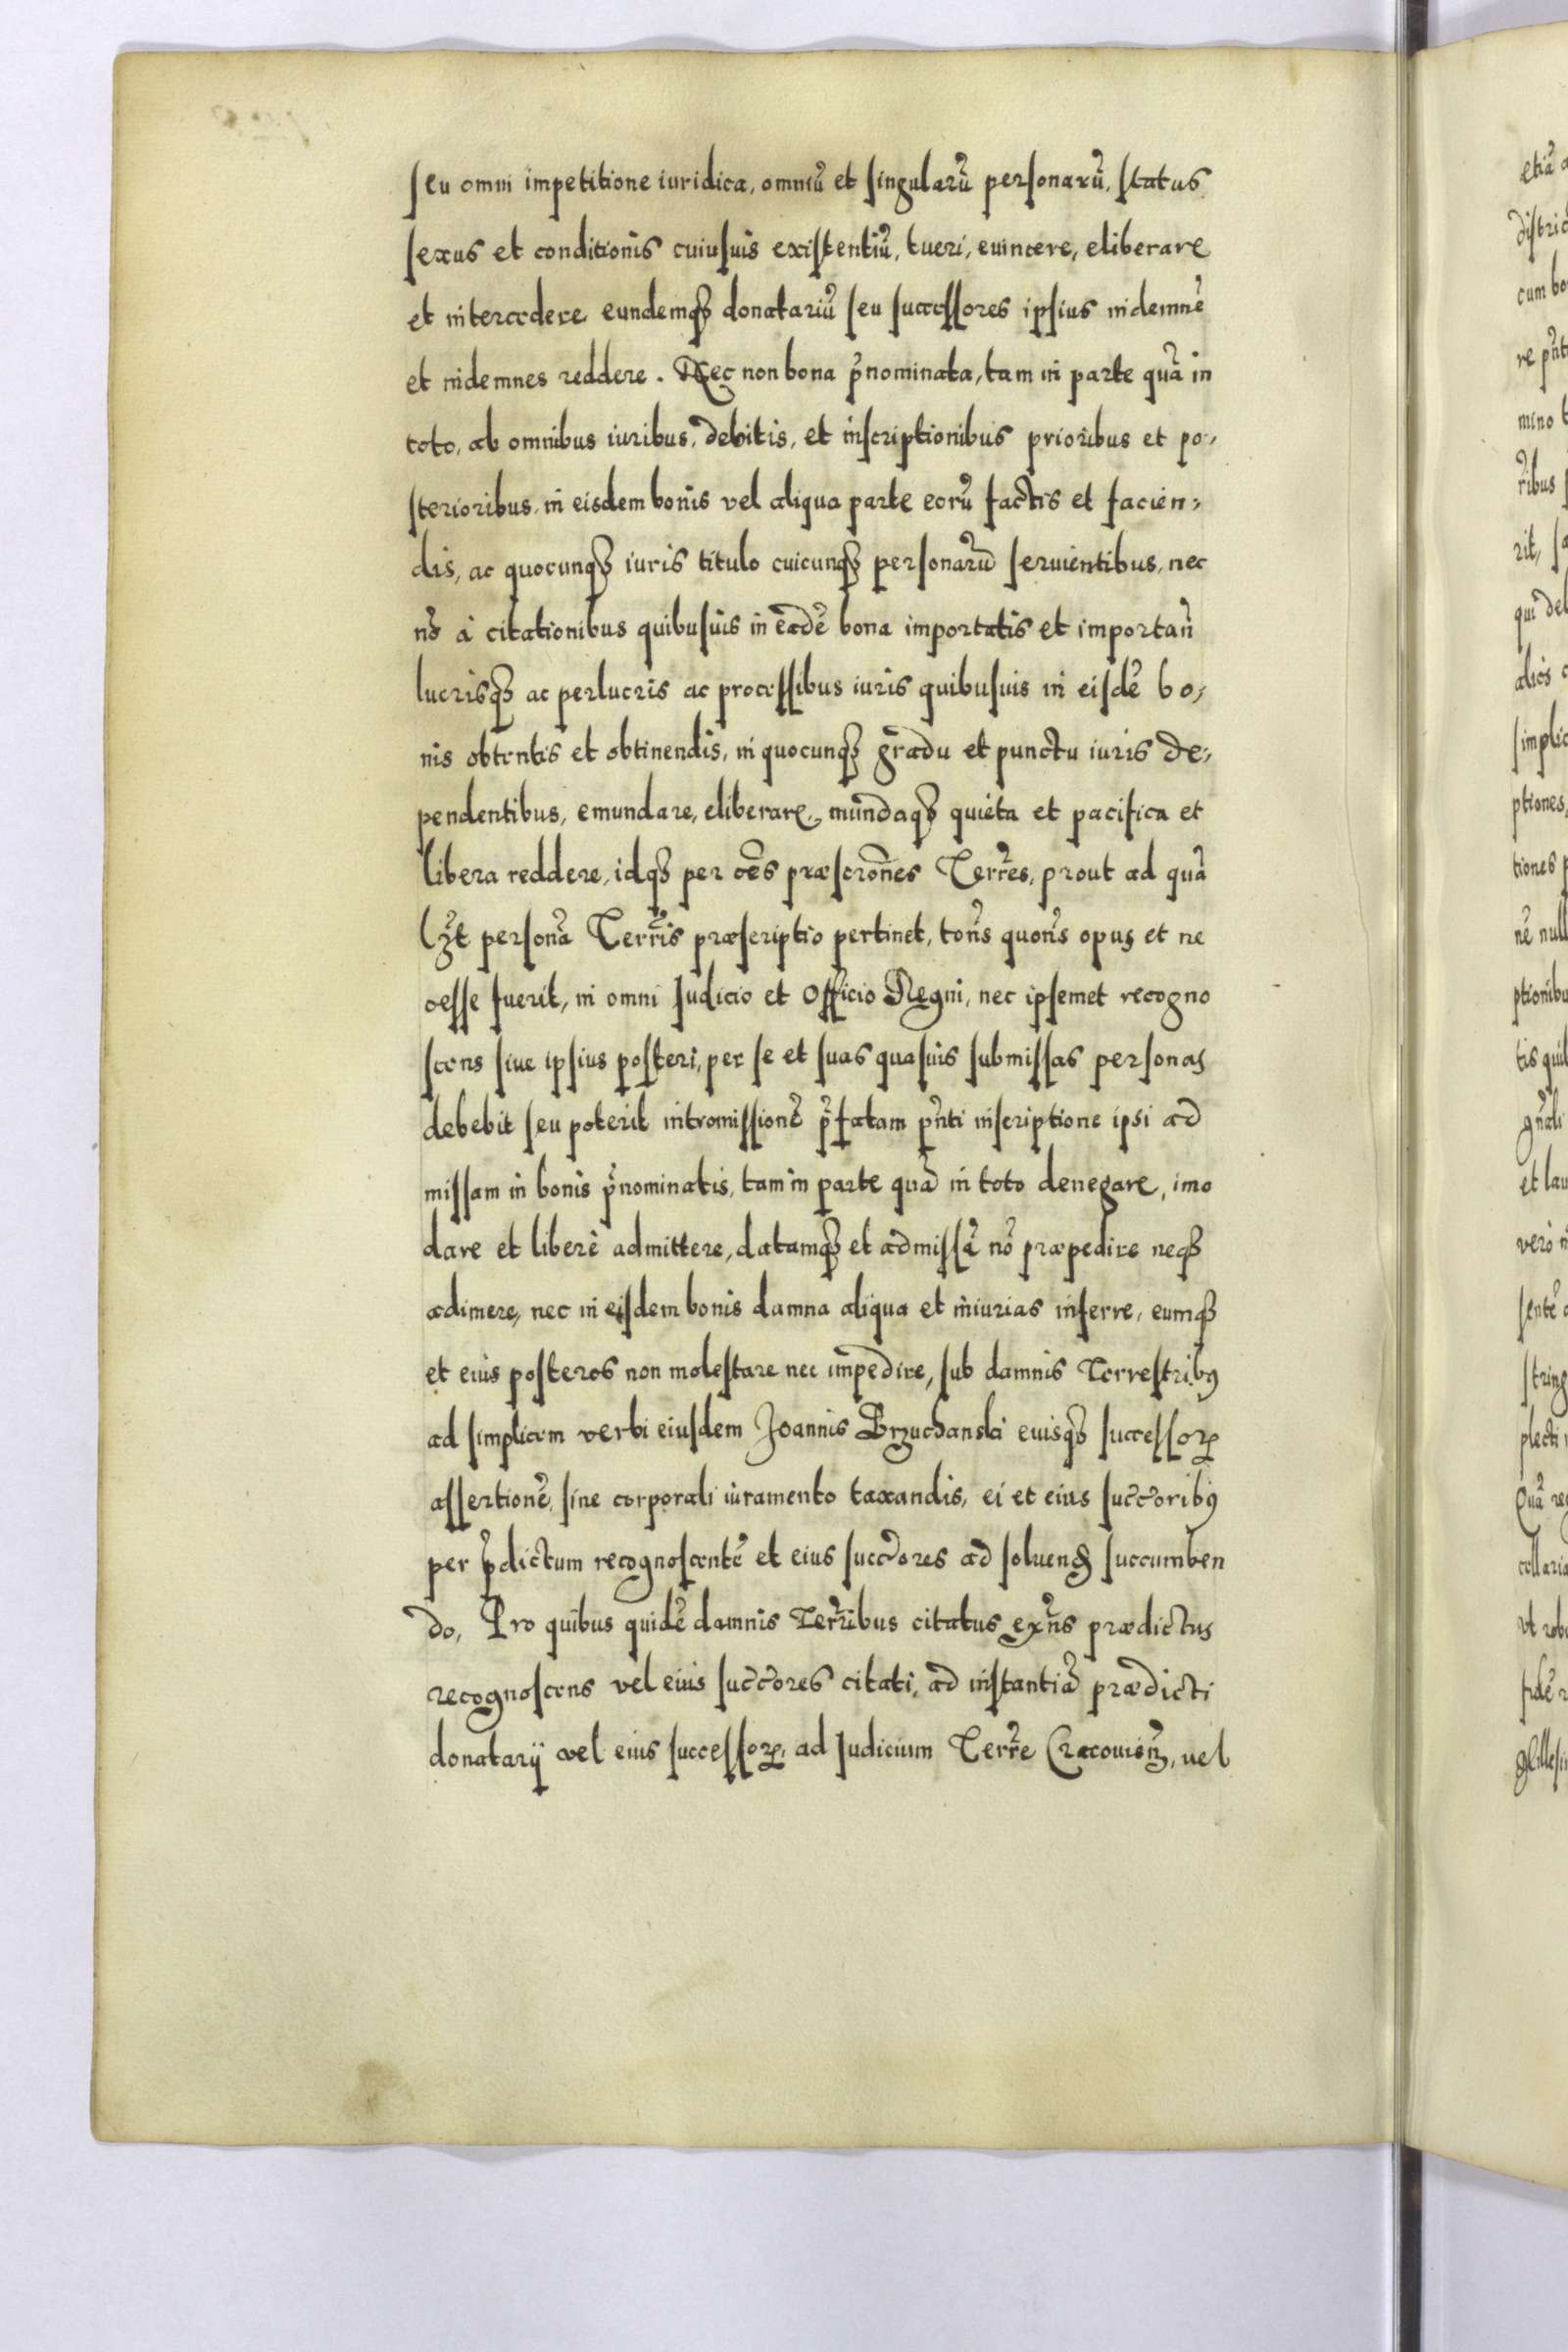 seu omni impetitione iuridica, omniũ et singularũ personarũ, status
sexus et conditionis cuiusuis existentiũ, tueri, euincere, eliberare
et intercedere, eundemqȝ donatariũ seu successores ipsius indemnẽ
et indemnes reddere. Nec non bona p̃nominata, tam in parte quã in
toto, ab omnibus iuribus, debitis, et inscriptionibus prioribus et po,
sterioribus, in eisdem bonis vel aliqua parte eorũ factis et facien,
dis, ac quocunqȝ iuris titulo cuicunqȝ personarũ seruientibus, nec
nõ à citationibus quibusuis in eadẽ bona importatis et importañ
lucrisqȝ ac perlucris ac processibus iuris quibusuis in eisdẽ bo,
nis obtentis et obtinendis, in quocunqȝ gradu et punctu iuris de,
pendentibus, emundare, eliberare, mundaqȝ quieta et pacifica et
libera reddere, idqȝ per oẽs præscrõnes Terr̃es, prout ad quã
lȝt personã Terr̃is præscriptio pertinet, tot̃ns quot̃ns opus et ne
cesse fuerit, in omni Judicio et Officio Regni, nec ipsemet recogno
scens siue ipsius posteri, per se et suas quasuis submissas personas
debebit seu poterit intromissionẽ p̃fatam p̃nti inscriptione ipsi ad
missam in bonis p̃nominatis, tam in parte quã in toto denegare, imo
dare et liberè admittere, datamqȝ et admissã nõ præpedire neqȝ
adimere, nec in eisdem bonis damna aliqua et iniurias inferre, eumqȝ
et eius posteros non molestare nec impedire, sub damnis Terrestribꝰ
ad simplicem verbi eiusdem Joannis Brzuchanski euisqȝ successorꝝ
assertionẽ, sine corporali iuramento taxandis, ei et eius succ̃oribꝰ
per p̃dictum recognoscentẽ et eius succ̃ores ad soluenꝺ succumben
do, Pro quibus quidẽ damnis Terr̃ibus citatus ex̃ns prædictus
recognoscens vel eius succ̃ores citati, ad instantiã prædicti
donatarij vel eius successorꝝ, ad Judicium Terr̃e Cracouieñ, uel